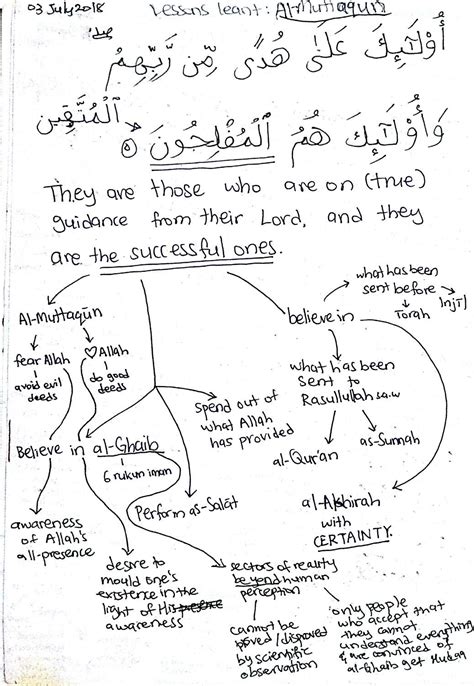 03 July 2018
Lessons learnt: Al-Muttaqun
أُوْلَٰٓئِكَ عَلَىٰ هُدًى مِّن رَّبِّهِمْ
ٱلْمُتَّقِين
وَأُوْلَٰٓئِكَ هُمُ ٱلْمُفْلِحُونَ ٥
They are those who are on (true)
guidance from their Lord, and they
are the successful ones.
Al-Muttaqūn
fear Allah
avoid evil
deeds
♡ Allah
do good
deeds
believe in
what has been
sent before
Torah
Injīl
what has been
sent to
Rasulullah s.a.w
al-Qur'an
as-Sunnah
al-Akhirah
with
CERTAINTY.
Spend out of
what Allah
has provided
Perform as-Salāt
Believe in al-Ghaib
6 rukun iman
awareness
of Allah's
all-presence
desire to
mould one's
existence in the
light of His presence
awareness
sectors of reality
beyond human
perception
cannot be
proved/disproved
by scientific
observation
only people
who accept that
they cannot
understand everything
& are convinced of
al-Ghaib get Hudaa